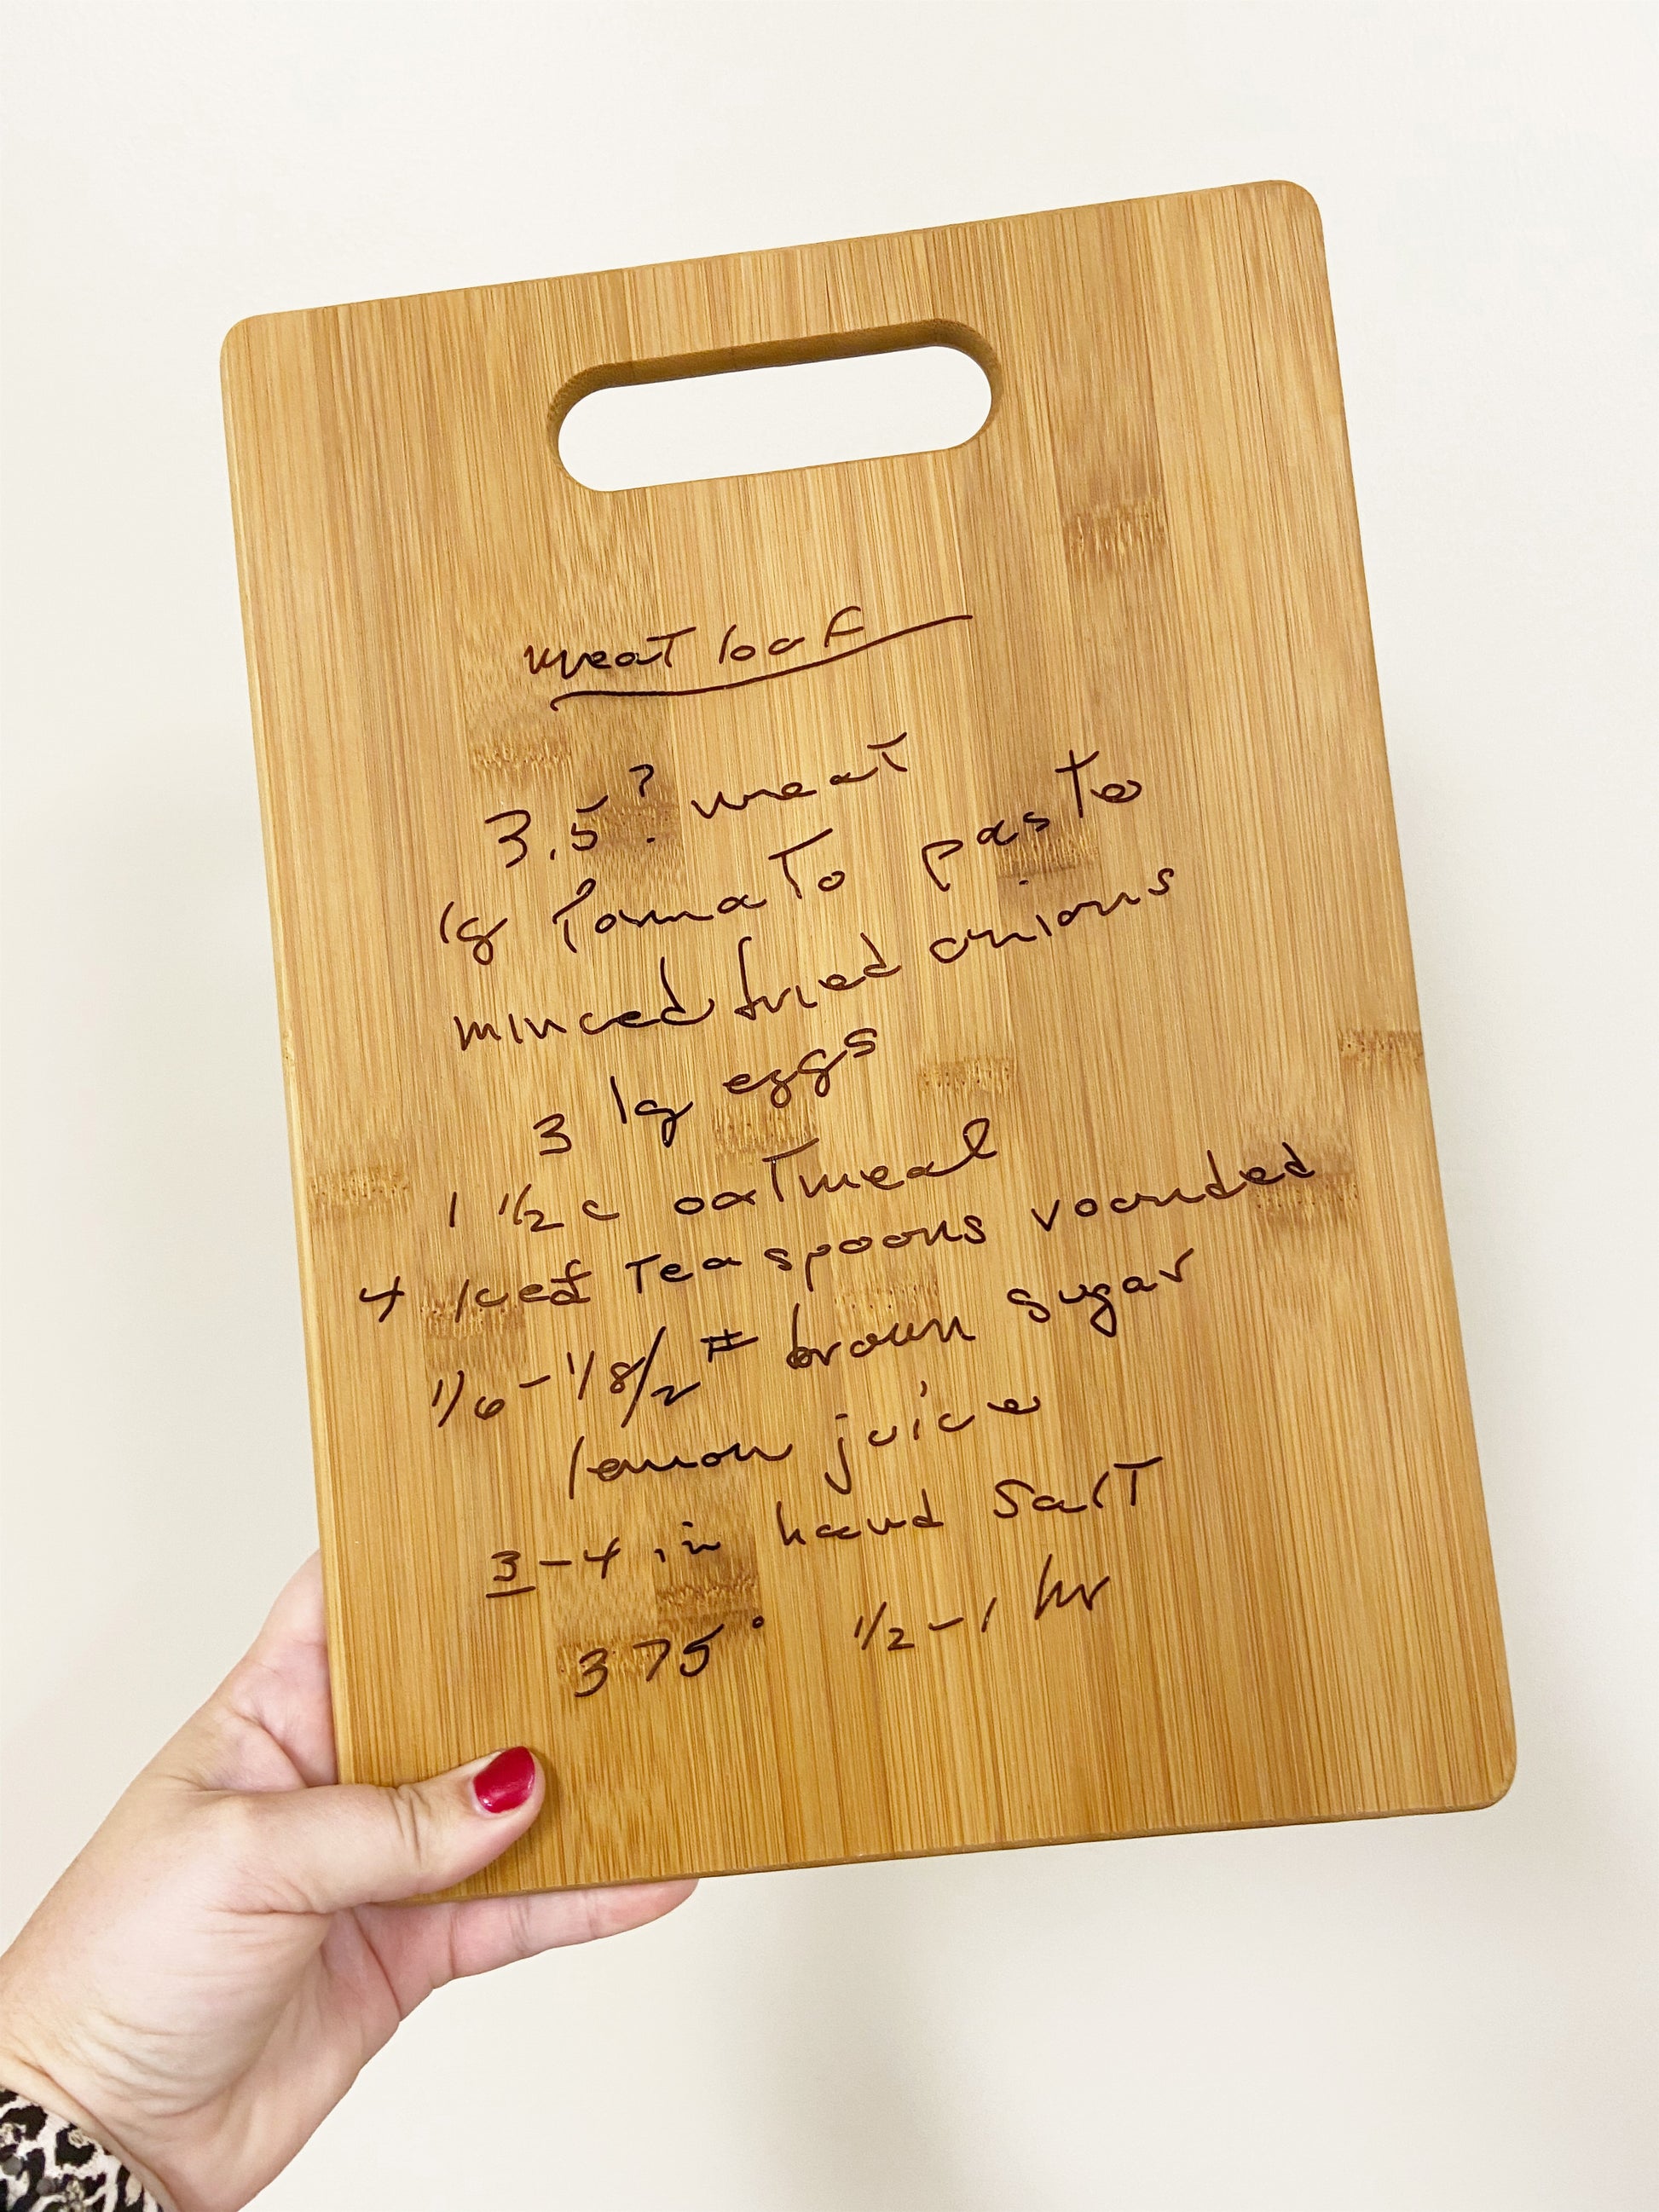 meat loaf
3.5? meat
lg Tomato paste
minced fried onions
3 lg eggs
1 1/2 c oatmeal
4 iced Teaspoons rounded
1/6 - 1/8/2 # brown sugar
lemon juice
3-4 in hand salt
375° 1/2-1 hr